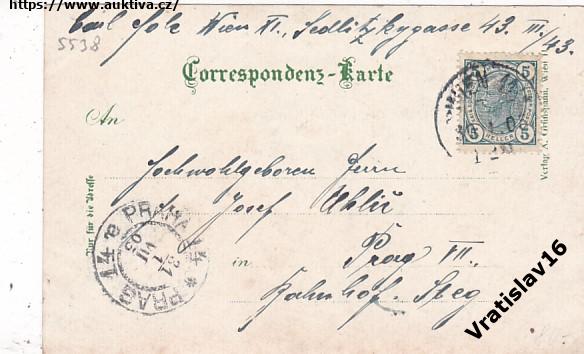 https://www.auktiva.cz/
Carl Wien XI., Sedlitzkygasse 43. III/43.
5538
Correspondenz-Karte
WIEN
5 5
HELLER
An
Hochwohlgeboren Herrn
Josef Uhliř
in Prag VII.
Bahnhof-Steg
Nur für die Adresse
PRAHA 14
PRAG 14
VII
Verlag A. Wien
Vratislav16